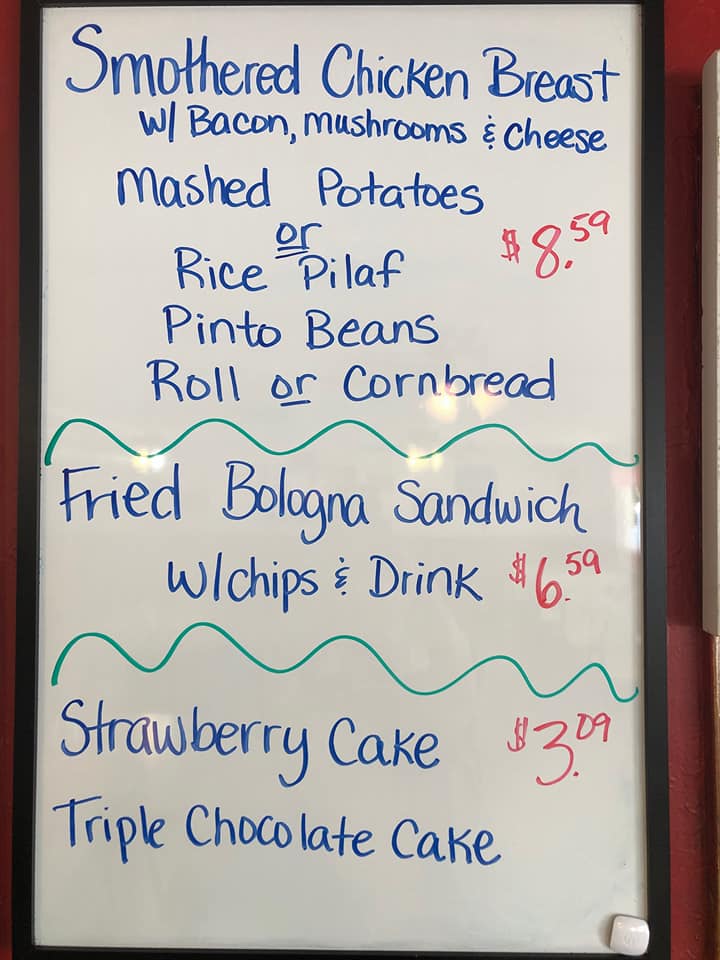 Smothered Chicken Breast
w/ Bacon, mushrooms & Cheese
Mashed Potatoes
or
$8.59
Rice Pilaf
Pinto Beans
Roll or Cornbread
Fried Bologna Sandwich
w/chips & Drink $6.59
Strawberry Cake $3.09
Triple Chocolate Cake